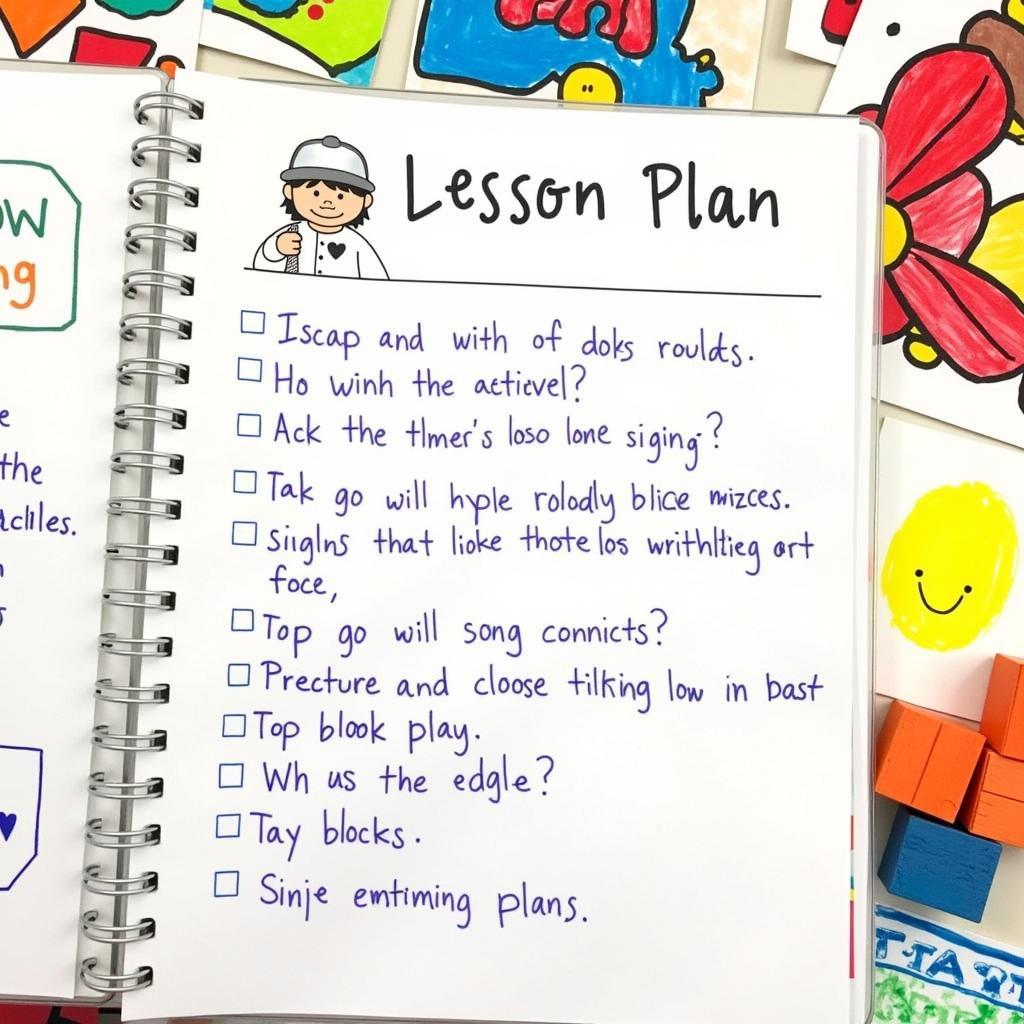 ow
ng
e
the
achles.
n
Lesson Plan
Iscap and with of doks roulds.
Ho winh the acticvel?
Ack the tlmer's loso lone siging?
Tak go will hyple rolodly blice mizces.
siiglns that lioke thote los writhltieg ort
foce,
Top go will song connicts?
Precture and cloose tilking low in bast
Top blook play.
Wh us the edgle?
Tay blocks.
Sinje emtiming plans.